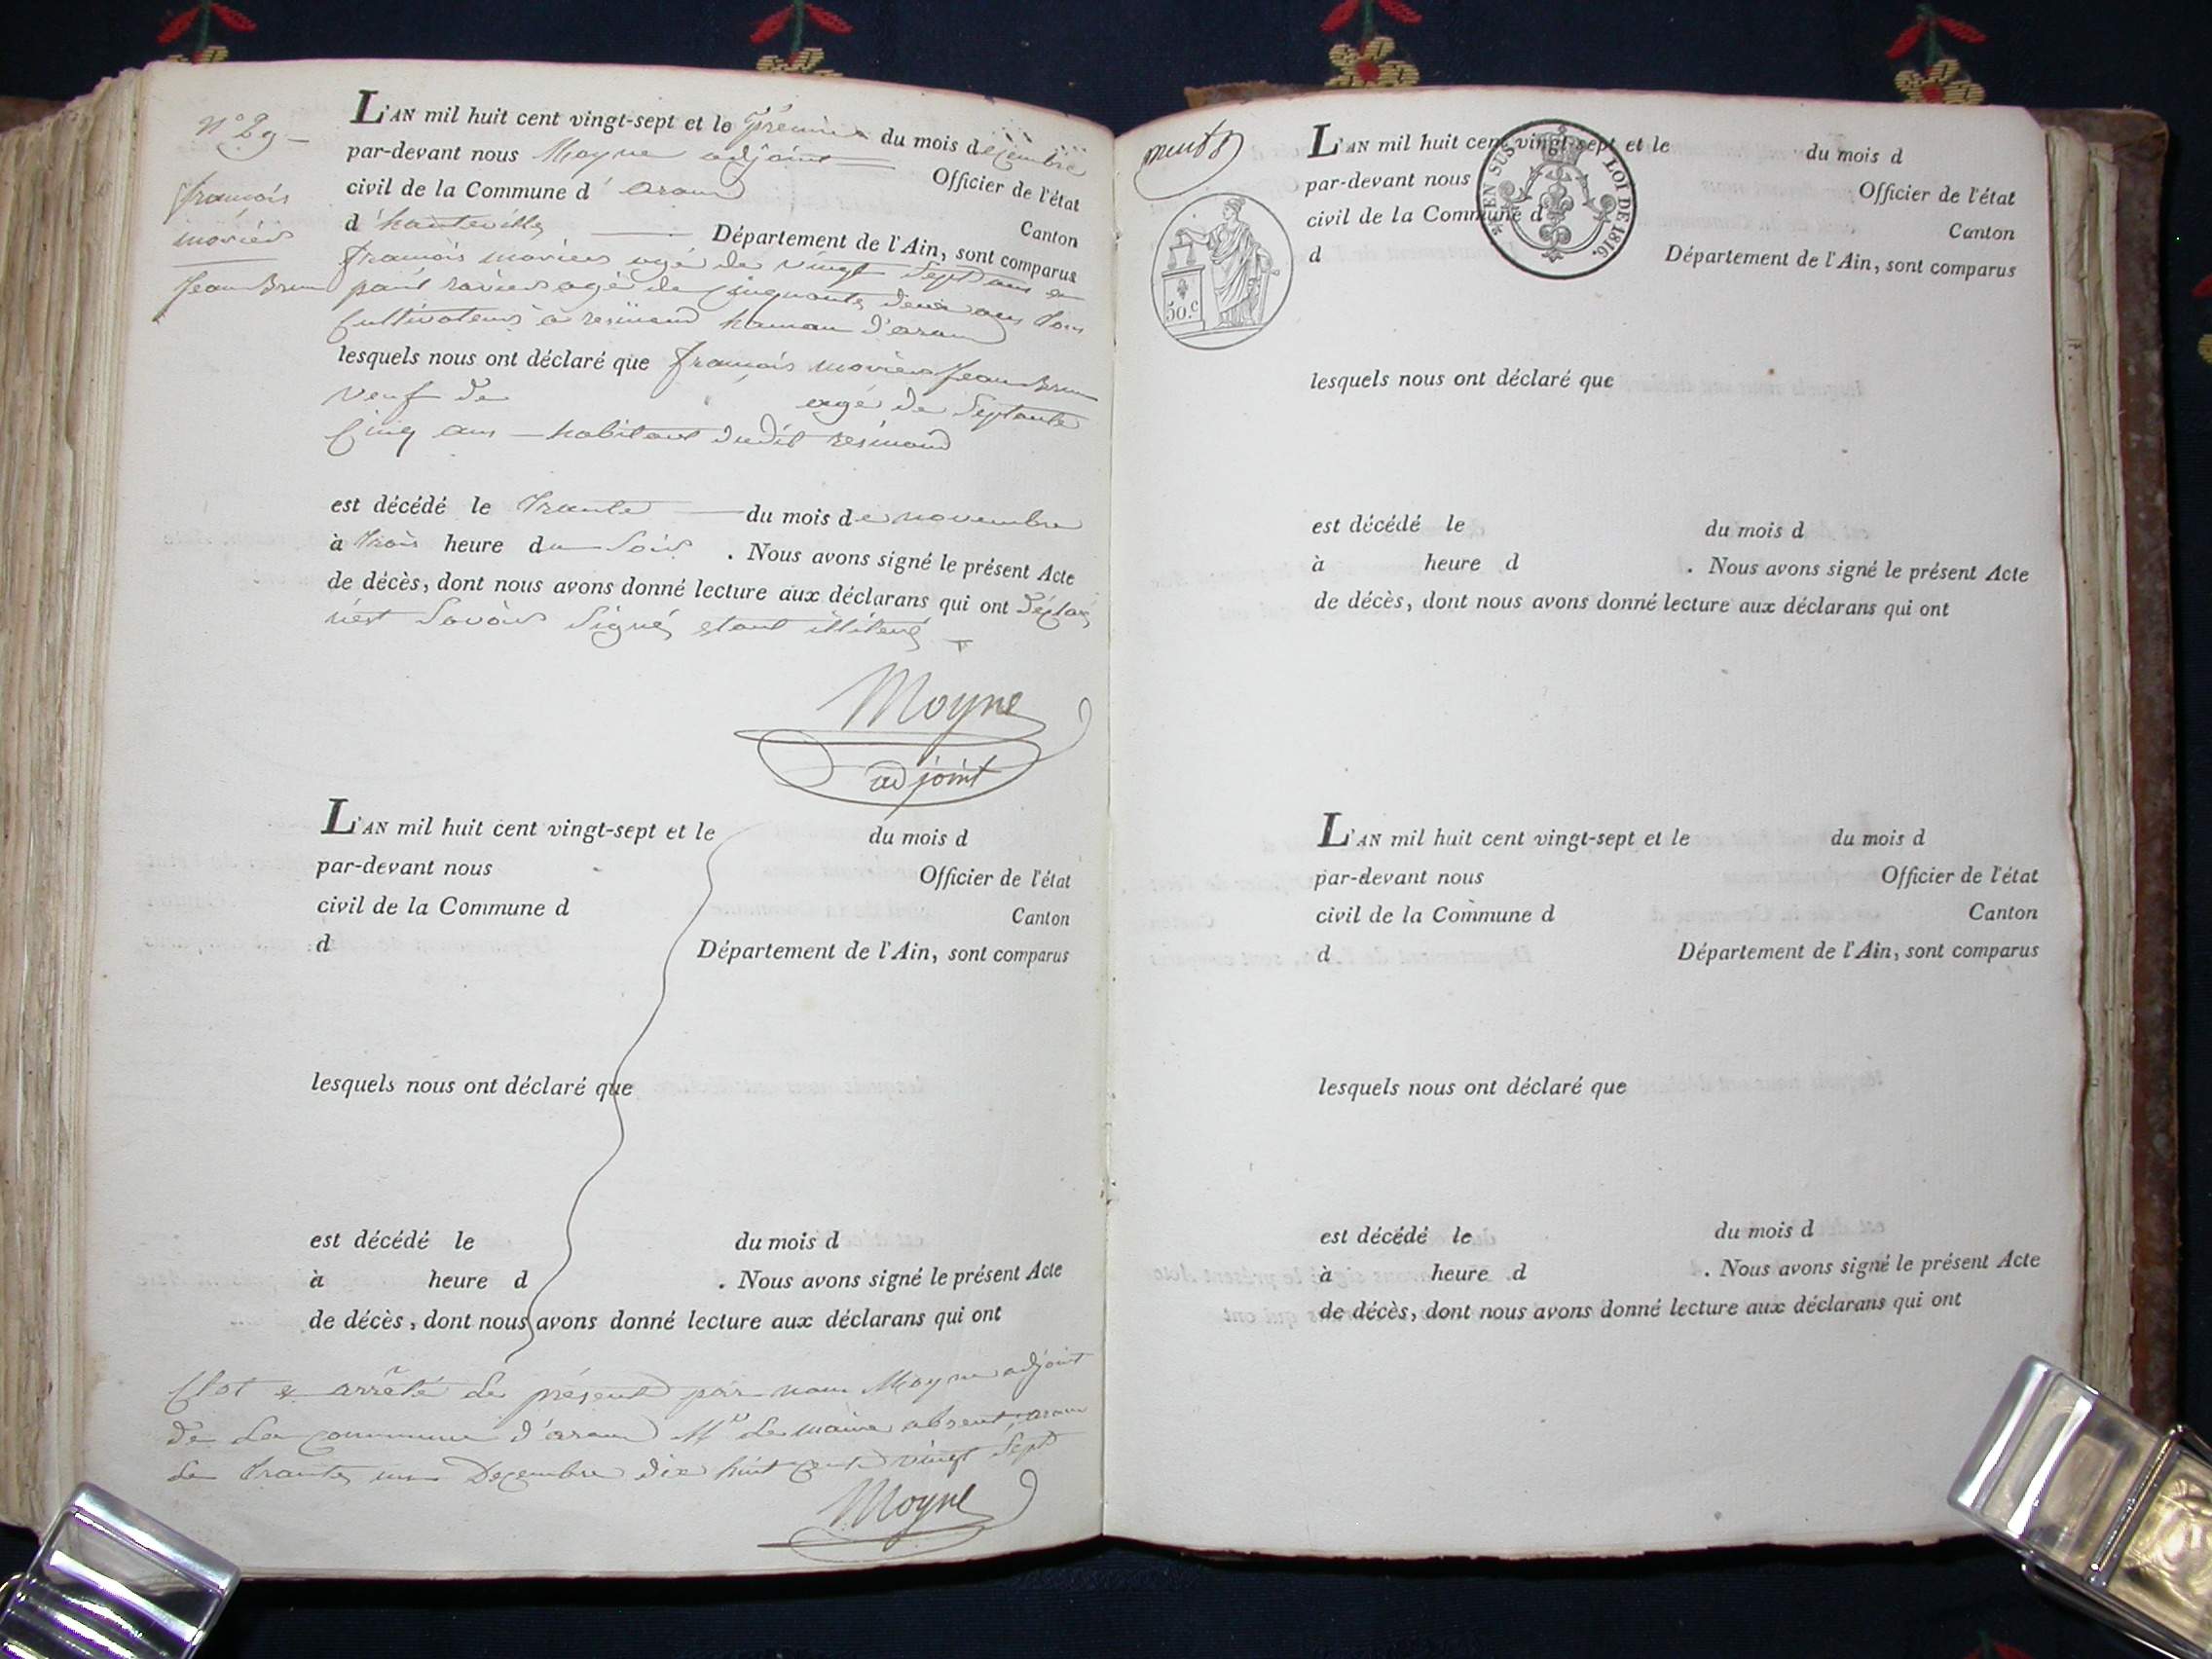 N° 29
françois
moviers
Jean Brun
L'AN mil huit cent vingt-sept et le premier du mois decembre
par-devant nous Moyne adjoint Officier de l'état
civil de la Commune d' aran Canton
d'hauteville Département de l'Ain, sont comparus
françois agé de vingt sept ans
agé de cinquante deux ans tous
Cultivateurs à resinand hamau d'aran
lesquels nous ont déclaré que françois Jean Brun
veuf de agé de septante
Cinq ans habitant dudit resinand
est décédé le trante du mois de novembre
à trois heure du soir . Nous avons signé le présent Acte
de décès, dont nous avons donné lecture aux déclarans qui ont déclaré
n'est savoir signé estant
Moyne
adjoint
L'AN mil huit cent vingt-sept et le du mois d
par-devant nous Officier de l'état
civil de la Commune d Canton
d Département de l'Ain, sont comparus
lesquels nous ont déclaré que
est décédé le du mois d
à heure d . Nous avons signé le présent Acte
de décès, dont nous avons donné lecture aux déclarans qui ont
Clot & arrêté le présent par nous Moyne adjoint
de la commune d'aran Mr le maire absent, aran
le trante un Decembre dix huit cent vingt sept
Moyne
EN SUS LOI DE 1816.
50.c
L'AN mil huit cent vingt-sept et le du mois d
par-devant nous Officier de l'état
civil de la Commune d Canton
d Département de l'Ain, sont comparus
lesquels nous ont déclaré que
est décédé le du mois d
à heure d . Nous avons signé le présent Acte
de décès, dont nous avons donné lecture aux déclarans qui ont
L'AN mil huit cent vingt-sept et le du mois d
par-devant nous Officier de l'état
civil de la Commune d Canton
d Département de l'Ain, sont comparus
lesquels nous ont déclaré que
est décédé le du mois d
à heure d . Nous avons signé le présent Acte
de décès, dont nous avons donné lecture aux déclarans qui ont